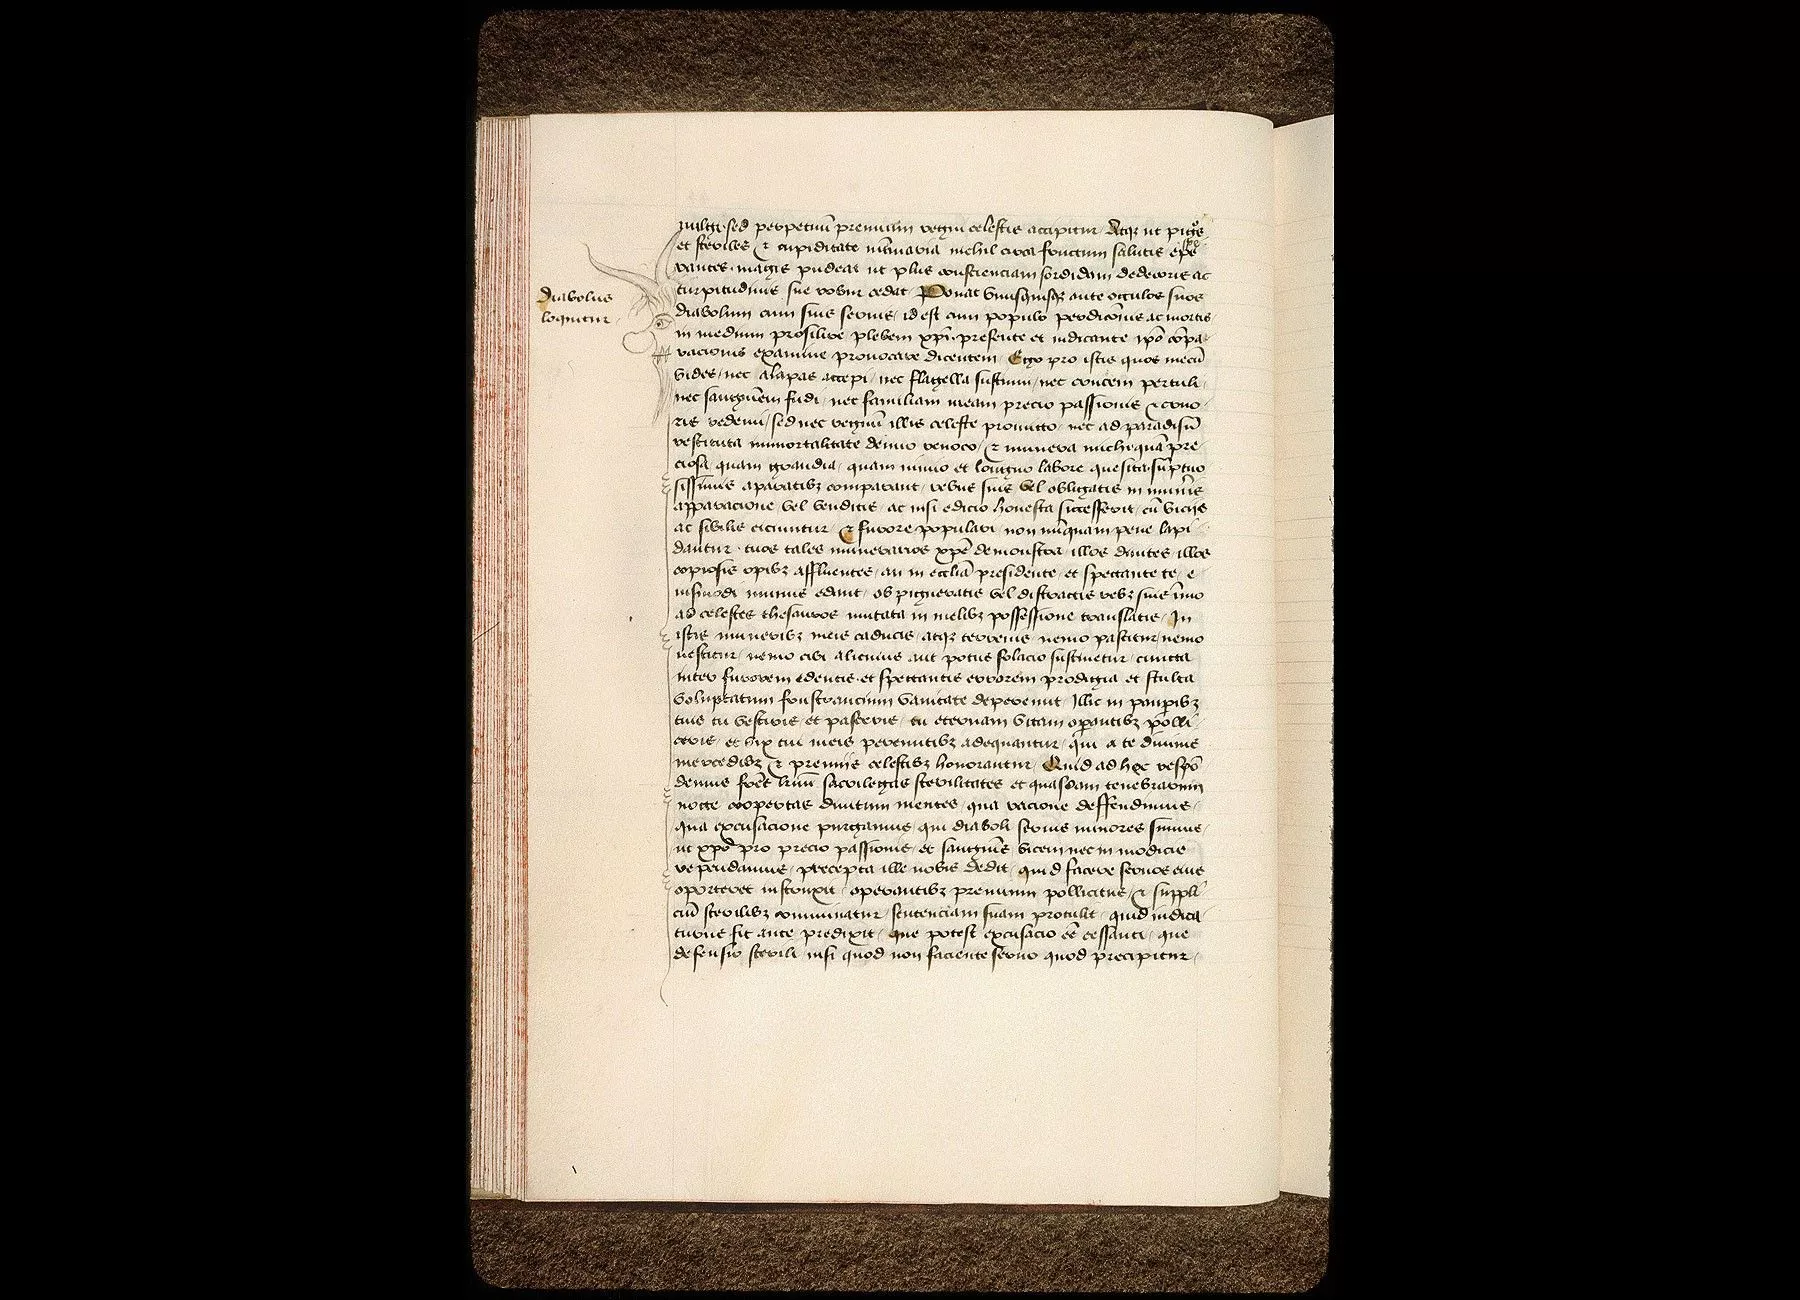 vulgi · sed perpetuū premium regni celestis accipitur Atqꝫ ut pigros
et steriles ⁊ cupiditate nūmaria nichil circa fructum salutis ope
rantes · magis pudeat ut plus conscienciam sordidam dedecoris ac
turpitudinis sue rubor cedat Ponat vnusquisqꝫ ante occulos suos
diabolus
loquitur
diabolum cum suis seruis / id est cum populo perdicōnis ac mortis
in medium prosilire plebem xp̄i · presente et iudicante ip̄o cōpa
racionis examine prouocare dicentem / Ego pro istis quos mecū
vides / nec alapas accepi / nec flagella sustinui / nec crucem pertuli
nec sanguinem fudi / nec familiam meam precio passionis ⁊ cruo
ris redemi / sed nec regnū illis celeste promitto / nec ad paradisū
restituta immortalitate denuo reuoco / ⁊ munera michi quā pre
ciosa quam grandia / quam nimio et longuo labore quesita sūptuo
sissimis aparatibꝫ comparant / rebus suis vel obligatis in muneris
apparacione vel venditis / ac nisi edicio honesta successerit / cū viciis
ac sibilis eiciuntur / ⁊ furore populari / non nūquam pene lapi
dantur · tuos tales munerarios xp̄e demonstra / illos diuites / illos
copiosis opibꝫ affluentes / an in ecclīa presidente / et spectante te / e
iusmodi munus edant / ob pigneratis vel distractis rebꝫ suis īmo
ad celestes thesauros mutata in melius possessione translatis / In
istis muneribꝫ meis caducis / atqꝫ terrenis / nemo pascitur / nemo
uestitur / nemo cibi alicuius aut potus solacio sustinetur / cuncta
inter furorem edentis · et spectantis errorem prodigia et stulta
voluptatum frustrancium vanitate depereunt / Illic in pauperibꝫ
tuis tu vestiris / et pasceris / tu eternam vitam operantibꝫ polli
ceris / et vix tui meis pereuntibꝫ adequantur / qui a te diuinis
mercedibꝫ ⁊ premiis celestibꝫ honorantur / Quid ad hec respō
demus
sacrilegas sterilitates et quasdam tenebrarum
nocte coopertas diuitum mentes / qua racione deffendimus /
qua excusacione purgamus / qui diaboli seruis minores simus /
ut xp̄o pro precio passionis / et sanguinis vicem nec in modicis
rependamus / precepta ille nobis dedit / quid facere seruos eius
oporteret instruxit / operantibꝫ premium pollicitus / ⁊ suppli
ciū sterilibꝫ comminatur / sentenciam suam protulit / quid iudica
turus sit ante predixit / que potest excusacio eē cessanti / que
defensio sterili nisi quod non faciente seruo quod precipitur /